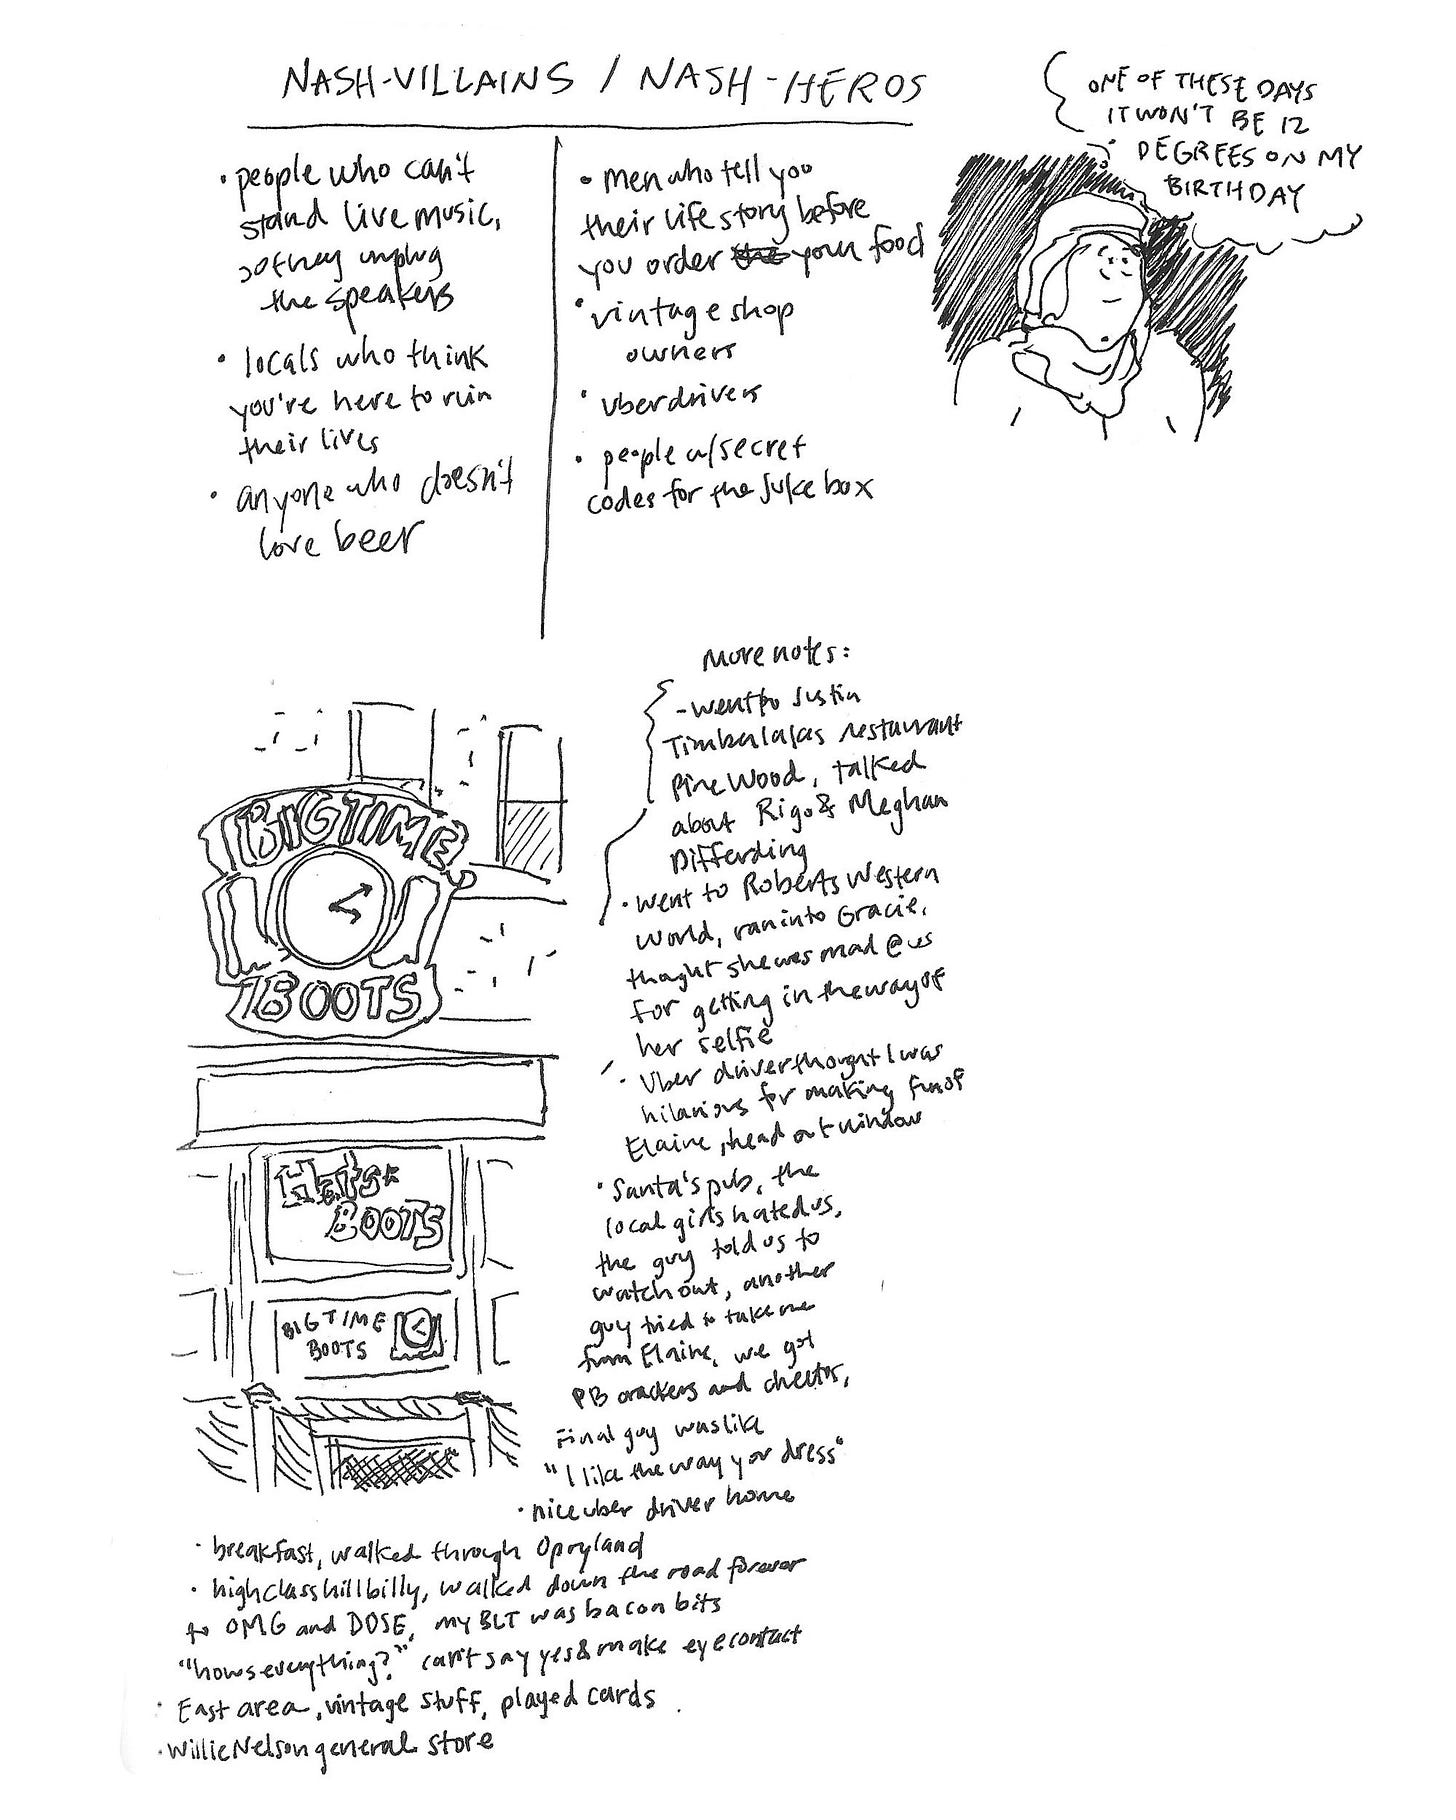 NASH-VILLAINS / NASH-HEROS
• people who can't
stand live music,
so they unplug
the speakers
• locals who think
you're here to ruin
their lives
• anyone who doesn't
love beer
• men who tell you
their life story before
you order the your food
• vintage shop
owners
• uber drivers
• people w/secret
codes for the juke box
ONE OF THESE DAYS
IT WON'T BE 12
DEGREES ON MY
BIRTHDAY
BIG TIME
BOOTS
Hats &
BOOTS
BIG TIME
BOOTS
More notes:
- went to Justin
Timberlakes restaurant
PineWood, talked
about Rigo & Meghan
Differding
• went to Roberts Western
World, ran into Gracie,
thought she was mad @ us
for getting in the way of
her selfie
• Uber driver thought I was
hilarious for making fun of
Elaine, head out window
• Santa's pub, the
local girls hated us,
the guy told us to
watch out, another
guy tried to take me
from Elaine, we got
PB crackers and cheetos,
Final guy was like
"I like the way you dress"
• nice uber driver home
• breakfast, walked through Opryland
• high class hillbilly, walked down the road forever
to OMG and DOSE, my BLT was bacon bits
"hows everything?" can't say yes & make eye contact
• East area, vintage stuff, played cards
• Willie Nelson general store